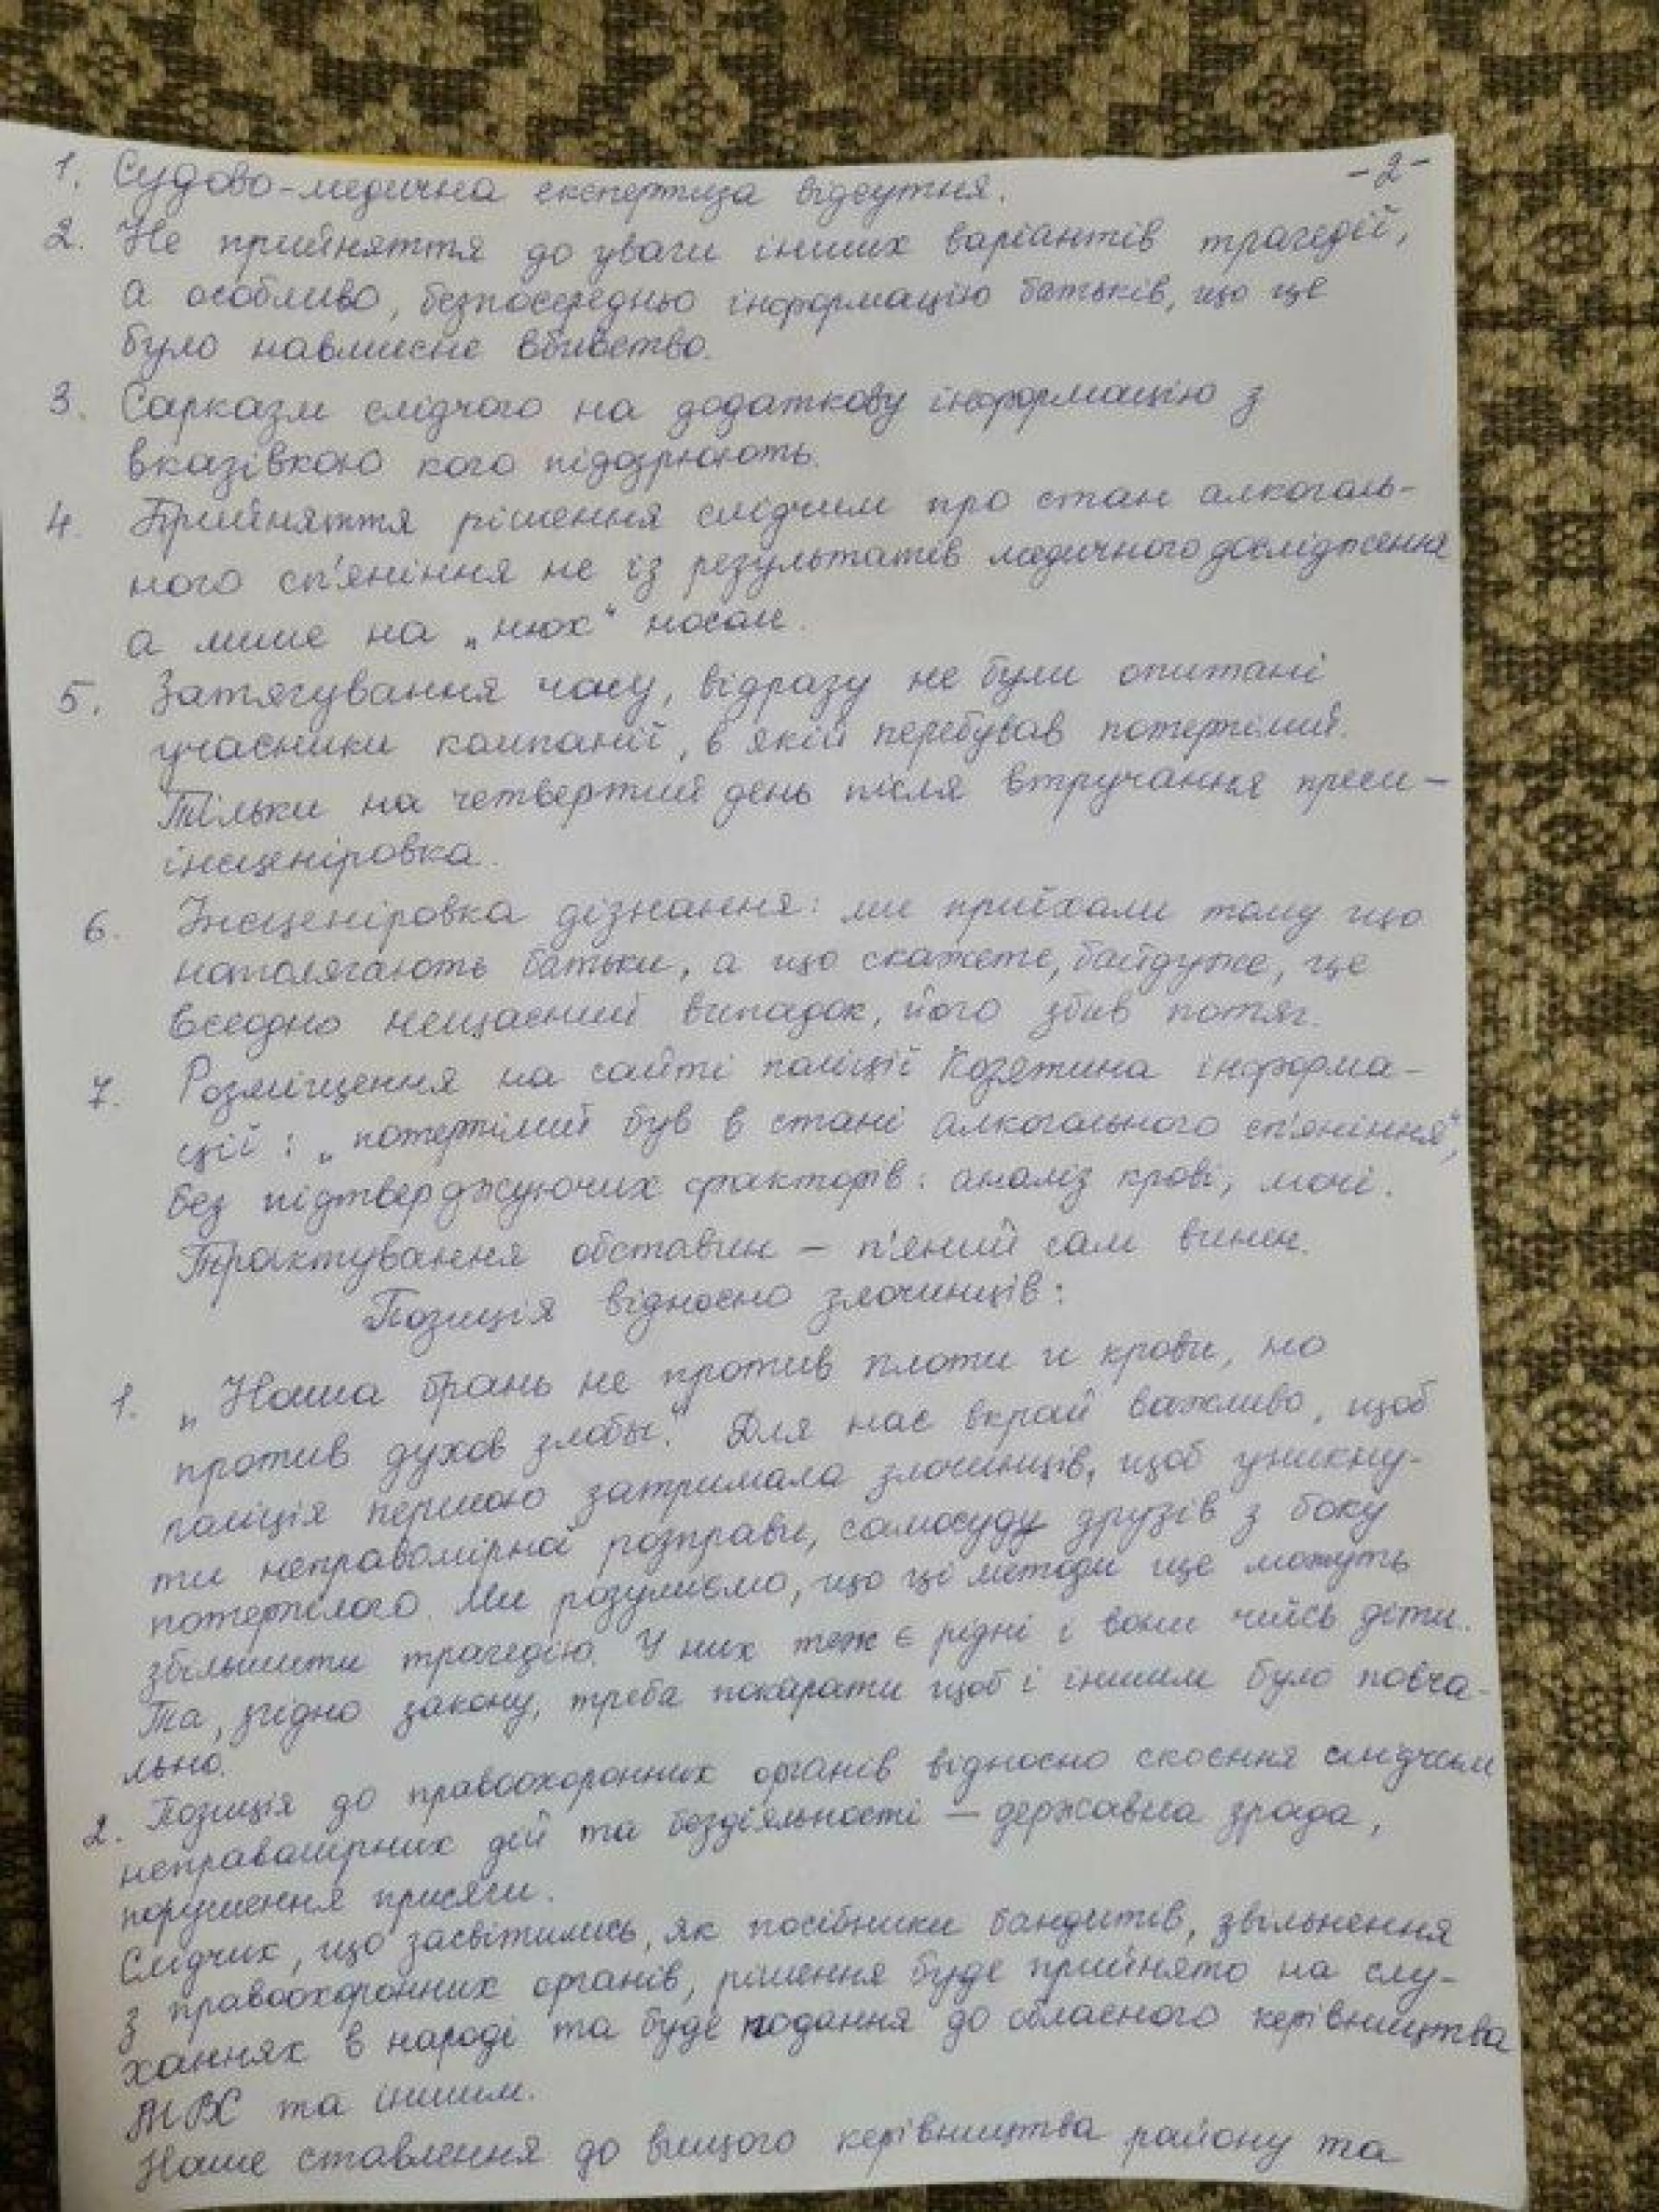 -2-
1. Судово-медична експертиза відсутня.
2. Не прийняття до уваги інших варіантів трагедії,
а особливо, безпосередньо інформацію батьків, що це
було навмисне вбивство.
3. Сарказм слідчого на додаткову інформацію з
вказівкою кого підозрюють.
4. Прийняття рішення слідчим про стан алкоголь-
ного сп'яніння не із результатів медичного дослідження
а лише на „нюх“ носом.
5. Затягування часу, відразу не були опитані
учасники компанії, в якій перебував потерпілий.
Тільки на четвертий день після втручання преси –
інсценіровка.
6. Інсценіровка дізнання: ми приїхали тому що
наполягають батьки, а що скажете, байдуже, це
всеодно нещасний випадок, його збив потяг.
7. Розміщення на сайті поліції Козятина інформа-
ції: „потерпілий був в стані алкогольного сп'яніння“,
без підтверджуючих факторів: аналіз крові, мочі.
Трактування обставин – п'яний сам винен.
Позиція відносно злочинців:
1. „Наша брань не против плоти и крови, но
против духов злобы.“ Для нас вкрай важливо, щоб
поліція першою затримала злочинців, щоб уникну-
ти неправомірної розправи, самосуду друзів з боку
потерпілого. Ми розуміємо, що ці методи ще можуть
збільшити трагедію. У них теж є рідні і вони чийсь діти.
Та, згідно закону, треба покарати щоб і іншим було повча-
льно.
2. Позиція до правоохоронних органів відносно скоєння слідчим
неправомірних дій та бездіяльності – державна зрада,
порушення присяги.
Слідчих, що засвітились, як посібники бандитів, звільнення
з правоохоронних органів, рішення буде прийнято на слу-
ханнях в народі та буде подання до обласного керівництва
МВС та іншим.
Наше ставлення до вищого керівництва району та